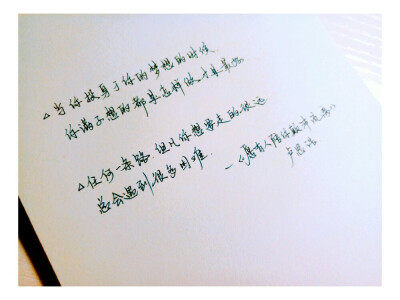 △当你投身于你的梦想的时候,
你满子想的都是怎样做才算最好。
△任何一条路,但凡你想要走的很远
总会遇到很多困难.
—《愿有人陪你颠沛流离》
卢思浩